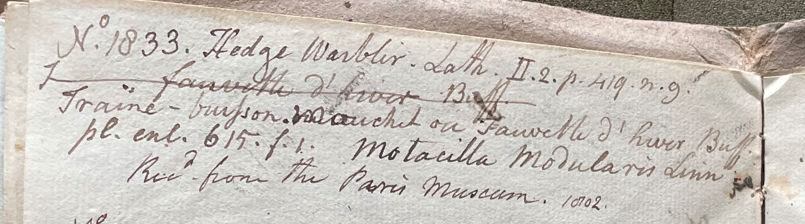 No. 1833. Hedge Warbler. Lath. II. 2. p. 419. n. 9.
fauvette d'hiver Buff.
Traine-buisson. Mouchet ou Fauvette d'hiver Buff.
pl. enl. 615. f. 1. Motacilla Modularis Linn
Recd. from the Paris Museum. 1802.
No